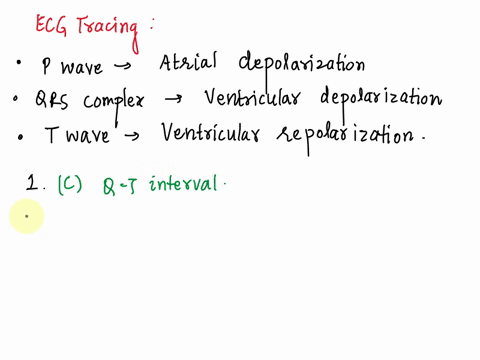 ECG Tracing :
• P wave → Atrial depolarization
• QRS complex → Ventricular depolarization
• T wave → Ventricular repolarization.
1. (C) Q-T interval.